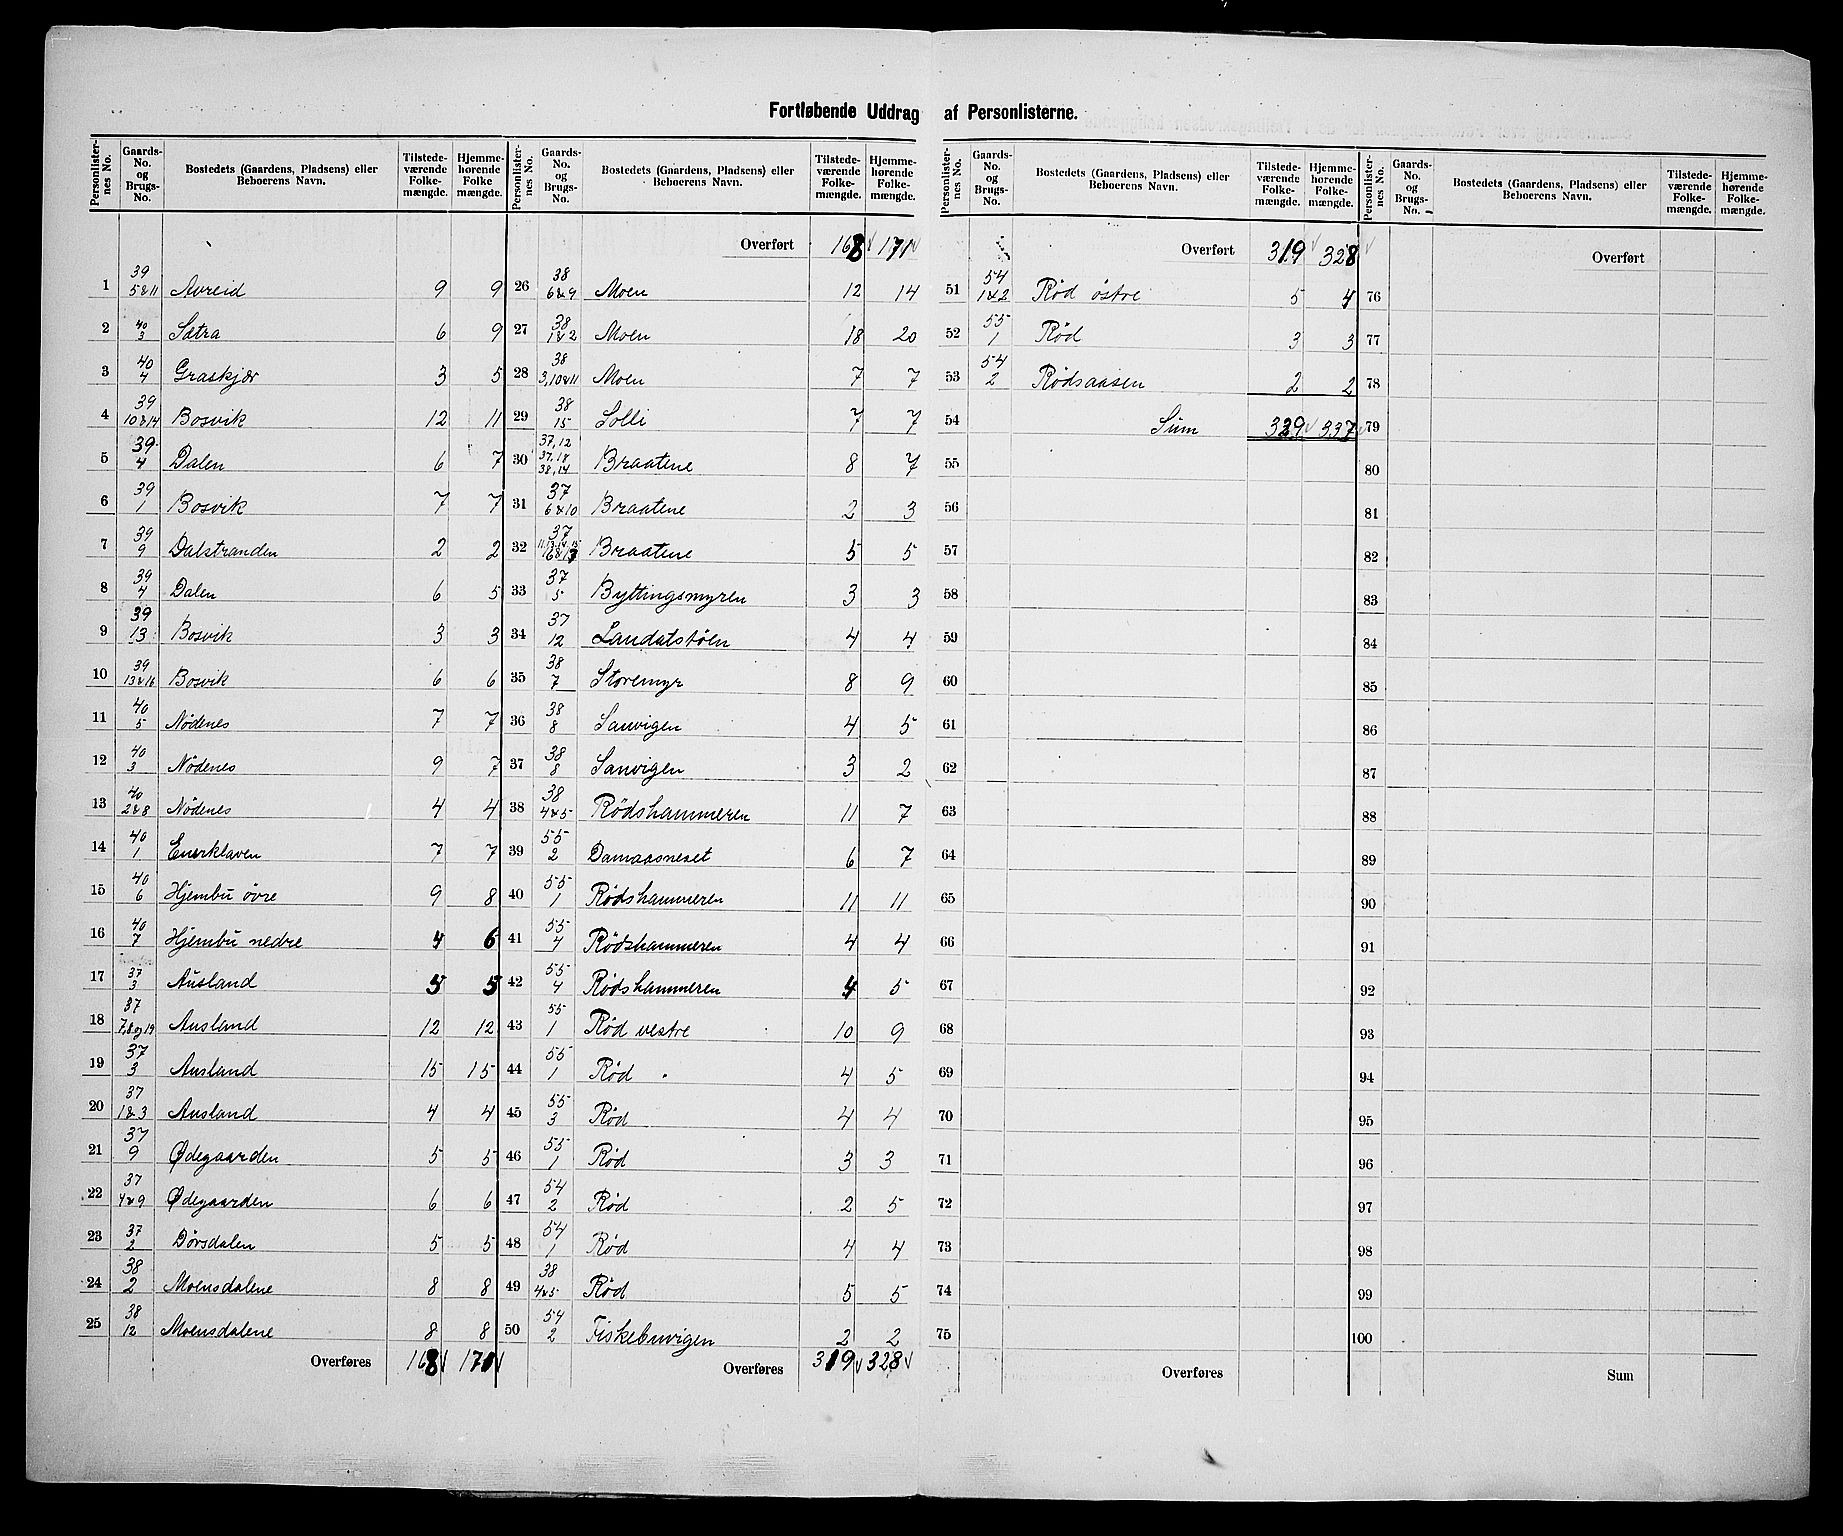 Fortløbende Uddrag af Personlisterne.
Personlister-nes No. | Gaards-No. og Brugs-No. | Bostedets (Gaardens, Pladsens) eller Beboerens Navn. | Tilstede-værende Folke-mængde. | Hjemme-hørende Folke mængde.
1 | 39 5&11 | Avreid | 9 | 9
2 | 40 3 | Sætra | 6 | 9
3 | 40 4 | Graskjær | 3 | 5
4 | 39 10&14 | Bosvik | 12 | 11
5 | 39 4 | Dalen | 6 | 7
6 | 39 1 | Bosvik | 7 | 7
7 | 39 9 | Dalstranden | 2 | 2
8 | 39 4 | Dalen | 6 | 5
9 | 39 13 | Bosvik | 3 | 3
10 | 39 13&16 | Bosvik | 6 | 6
11 | 40 5 | Nødenes | 7 | 7
12 | 40 3 | Nødenes | 9 | 7
13 | 40 2&8 | Nødenes | 4 | 4
14 | 40 1 | Enerklaven | 7 | 7
15 | 40 6 | Hjembu øvre | 9 | 8
16 | 40 7 | Hjembu nedre | 4 | 6
17 | 37 3 | Ausland | 5 | 5
18 | 37 7,8og19 | Ausland | 12 | 12
19 | 37 3 | Ausland | 15 | 15
20 | 37 1&3 | Ausland | 4 | 4
21 | 37 9 | Ødegaarden | 5 | 5
22 | 37 4&9 | Ødegaarden | 6 | 6
23 | 37 2 | Dørsdalen | 5 | 5
24 | 38 2 | Moensdalene | 8 | 8
25 | 38 12 | Moensdalene | 8 | 8
Overføres 168 171
Personlister-nes No. | Gaards-No. og Brugs-No. | Bostedets (Gaardens, Pladsens) eller Beboerens Navn. | Tilstede-værende Folke-mængde. | Hjemme-hørende Folke-mængde.
Overført 168 171
26 | 38 6&9 | Moen | 12 | 14
27 | 38 1&2 | Moen | 18 | 20
28 | 38 3,10&11 | Moen | 7 | 7
29 | 38 15 | Lolli | 7 | 7
30 | 37,12 37,18 38,14 | Braatene | 8 | 7
31 | 37 6&10 | Braatene | 2 | 3
32 | 37 | Braatene | 5 | 5
33 | 37 5 | Byttingsmyren | 3 | 3
34 | 37 12 | Landatstøen | 4 | 4
35 | 38 7 | Storemyr | 8 | 9
36 | 38 8 | Sanvigen | 4 | 5
37 | 38 8 | Sanvigen | 3 | 2
38 | 38 4&5 | Rødshammeren | 11 | 7
39 | 55 2 | Damaasneset | 6 | 7
40 | 55 1 | Rødshammeren | 11 | 11
41 | 55 4 | Rødshammeren | 4 | 4
42 | 55 4 | Rødshammeren | 4 | 5
43 | 55 1 | Rød vestre | 10 | 9
44 | 55 1 | Rød | 4 | 5
45 | 55 3 | Rød | 4 | 4
46 | 55 1 | Rød | 3 | 3
47 | 54 2 | Rød | 2 | 5
48 | 54 1 | Rød | 4 | 4
49 | 38 4&5 | Rød | 5 | 5
50 | 54 2 | Fiskebuvigen | 2 | 2
Overføres 319 328
Personlister-nes No. | Gaards-No. og Brugs-No. | Bostedets (Gaardens, Pladsens) eller Beboerens Navn. | Tilstede-værende Folke-mængde. | Hjemme-hørende Folke-mængde.
Overført 319 328
51 | 54 1&2 | Rød østre | 5 | 4
52 | 55 1 | Rød | 3 | 3
53 | 54 2 | Rødsaasen | 2 | 2
54 | Sum | 329 | 337
55
56
57
58
59
60
61
62
63
64
65
66
67
68
69
70
71
72
73
74
75
Overføres
Personlister-nes No. | Gaards-No. og Brugs-No. | Bostedets (Gaardens, Pladsens) eller Beboerens Navn. | Tilstede-værende Folke-mængde. | Hjemme-hørende Folke-mængde.
Overført
76
77
78
79
80
81
82
83
84
85
86
87
88
89
90
91
92
93
94
95
96
97
98
99
100
Sum